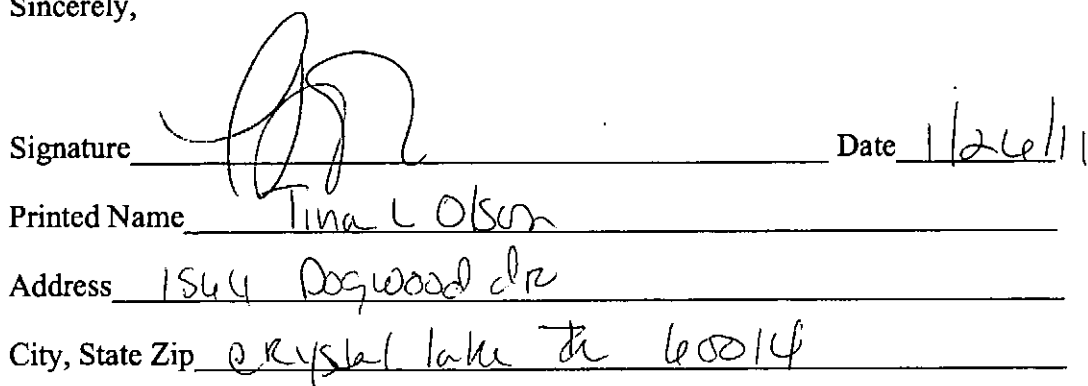 Sincerely,
Signature Date 1/26/11
Printed Name Tina L Olson
Address 1544 Dogwood dr
City, State Zip Crystal lake IL 60014